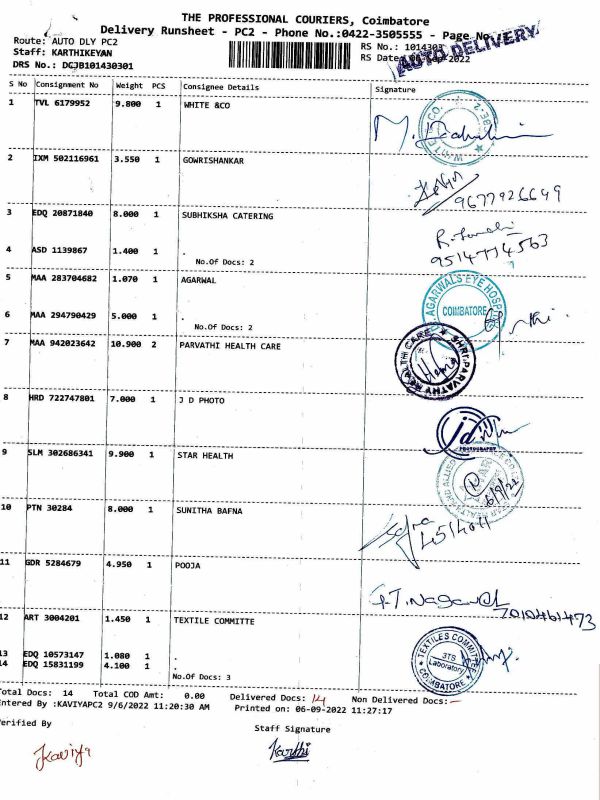 THE PROFESSIONAL COURIERS, Coimbatore
Delivery Runsheet - PC2 - Phone No.:0422-3505555 - Page No.
Route: AUTO DLY PC2
RS No.: 1014303
AUTO DELIVERY
Staff: KARTHIKEYAN
RS Date: -2022
DRS No.: DCJB101430301
S No Consignment No Weight PCS Consignee Details Signature
1 TVL 6179952 9.800 1 WHITE &CO
2 IXM 502116961 3.550 1 GOWRISHANKAR
9677926649
3 EDQ 20871840 8.000 1 SUBHIKSHA CATERING
4 ASD 1139867 1.400 1 .
No.Of Docs: 2
9514774563
5 MAA 283704682 1.070 1 AGARWAL
AGARWAL'S EYE HOSPITAL
COIMBATORE
6 MAA 294790429 5.000 1 .
No.Of Docs: 2
7 MAA 942023642 10.900 2 PARVATHI HEALTH CARE
SHRI PARVATHY HEALTH CARE
8 HRD 722747801 7.000 1 J D PHOTO
jd
PHOTOGRAPHY
9 SLM 302686341 9.900 1 STAR HEALTH
6/9/22
10 PTN 30284 8.000 1 SUNITHA BAFNA
11 GDR 5284679 4.950 1 POOJA
G.T. Nagar
7010461473
12 ART 3004201 1.450 1 TEXTILE COMMITTE
TEXTILES COMMITTEE
3TS
Laboratory
COIMBATORE
13 EDQ 10573147 1.080 1 .
14 EDQ 15831199 4.100 1 .
No.Of Docs: 3
Total Docs: 14 Total COD Amt: 0.00 Delivered Docs: 14 Non Delivered Docs: -
Entered By :KAVIYAPC2 9/6/2022 11:20:30 AM Printed on: 06-09-2022 11:27:17
Verified By
Staff Signature
Kaviya
Karthi